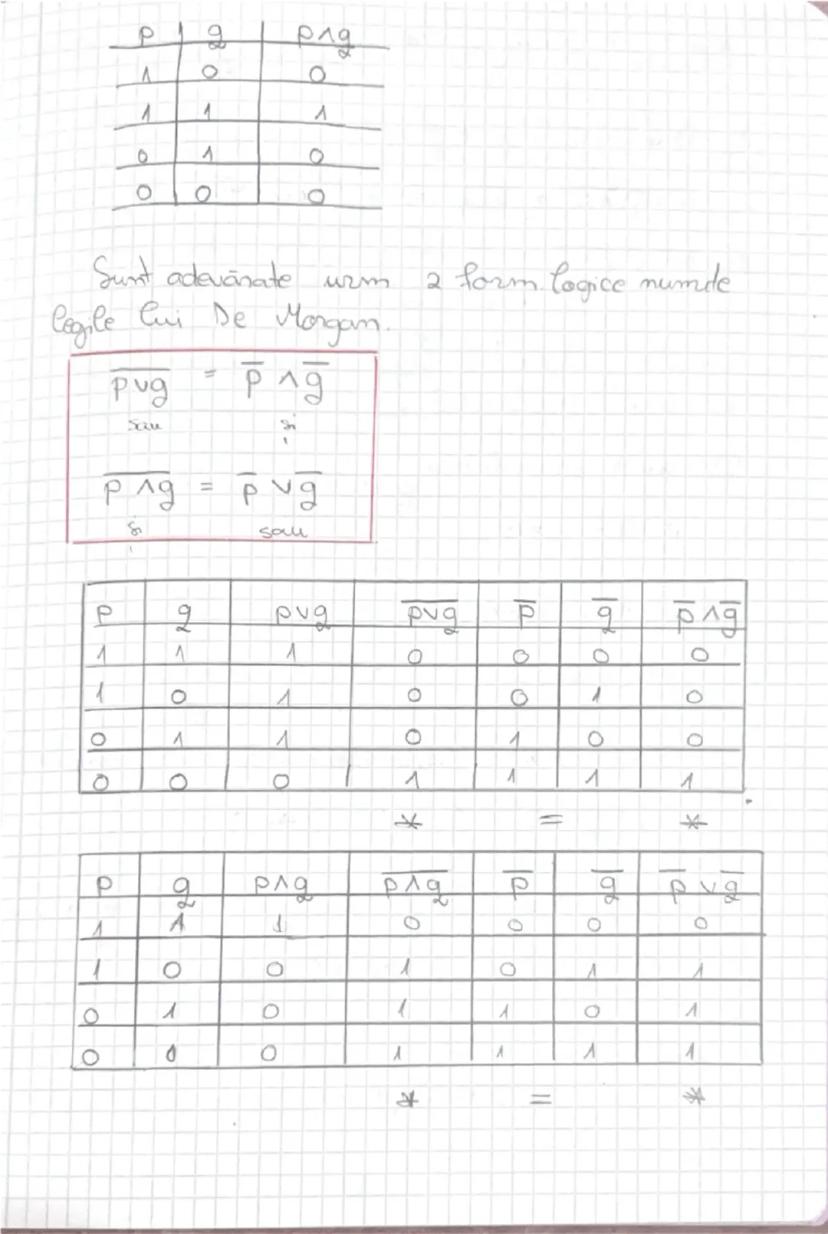 p | q | p∧q
1 | 0 | 0
1 | 1 | 1
0 | 1 | 0
0 | 0 | 0
Sunt adevărate urm 2 form. logice numite
legile lui De Morgan.
p̅∨̅q̅ = p̅ ∧ q̅
sau și
p̅ ̅∧̅q̅ = p̅ ∨ q̅
și sau
p | q | p∨q | p̅∨̅q̅ | p̅ | q̅ | p̅ ∧ q̅
1 | 1 | 1 | 0 | 0 | 0 | 0
1 | 0 | 1 | 0 | 0 | 1 | 0
0 | 1 | 1 | 0 | 1 | 0 | 0
0 | 0 | 0 | 1 | 1 | 1 | 1
* = *
p | q | p∧q | p̅∧̅q̅ | p̅ | q̅ | p̅ ∨ q̅
1 | 1 | 1 | 0 | 0 | 0 | 0
1 | 0 | 0 | 1 | 0 | 1 | 1
0 | 1 | 0 | 1 | 1 | 0 | 1
0 | 0 | 0 | 1 | 1 | 1 | 1
* = *